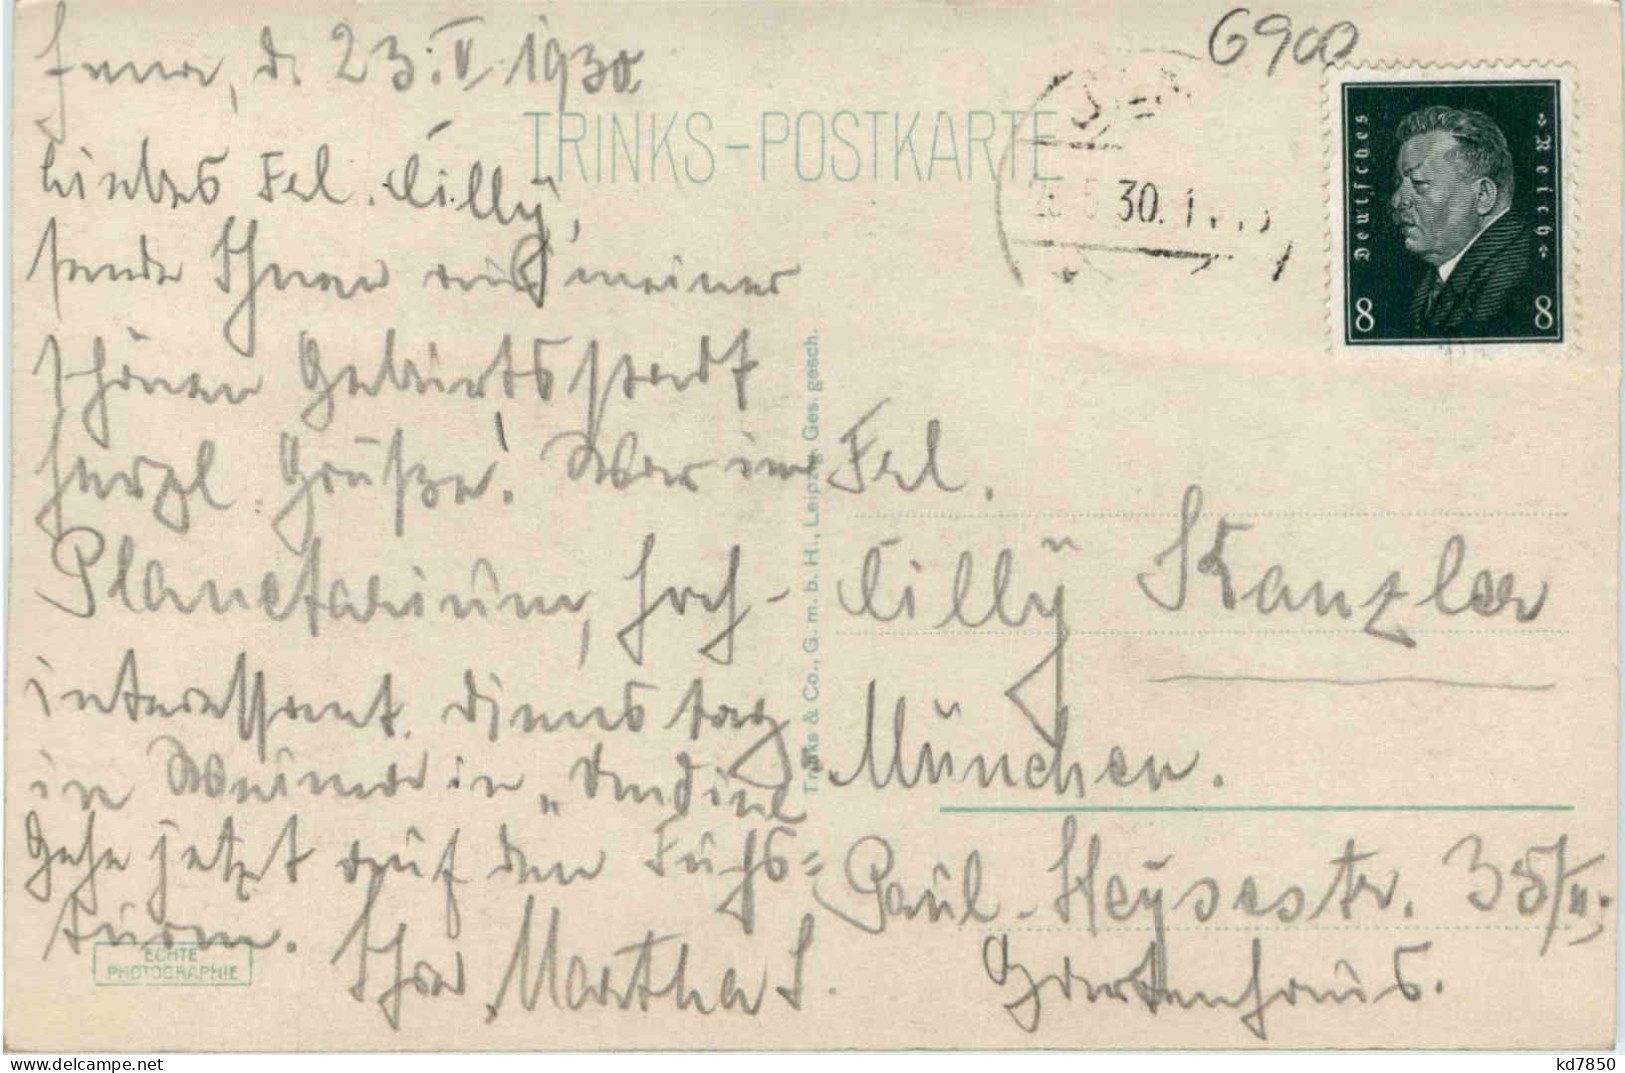 Jena, d. 23.V.1930.
Liebes Frl. Cilly,
sende Ihnen aus meiner
schönen Geburtsstadt
herzl. Grüße! War im
Planetarium, hoch-
interessant. Dienstag
in Weimar in
Gehe jetzt auf den Fuchs=
turm. Ihre Martha S.
TRINKS-POSTKARTE
ECHTE
PHOTOGRAPHIE
Trinks & Co., G. m. b. H., Leipzig. Ges. gesch.
6900
30. 1
Deutsches Reich
8 8
Frl.
Cilly Kanzler
München.
Paul-Heysestr. 35/II,
Gartenhaus.
kd7850